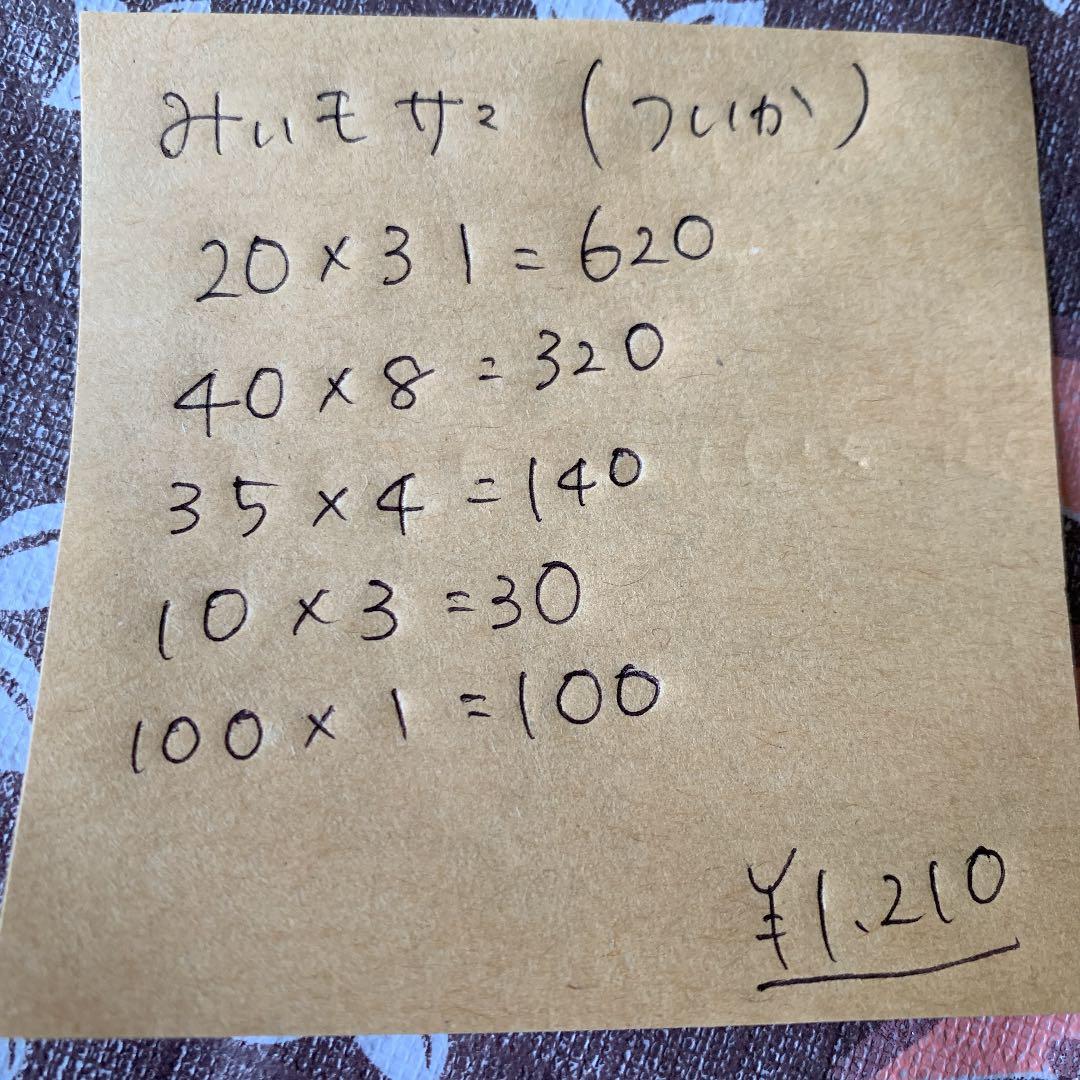 みいもサマ (ついか)
20×31=620
40×8=320
35×4=140
10×3=30
100×1=100
¥1,210